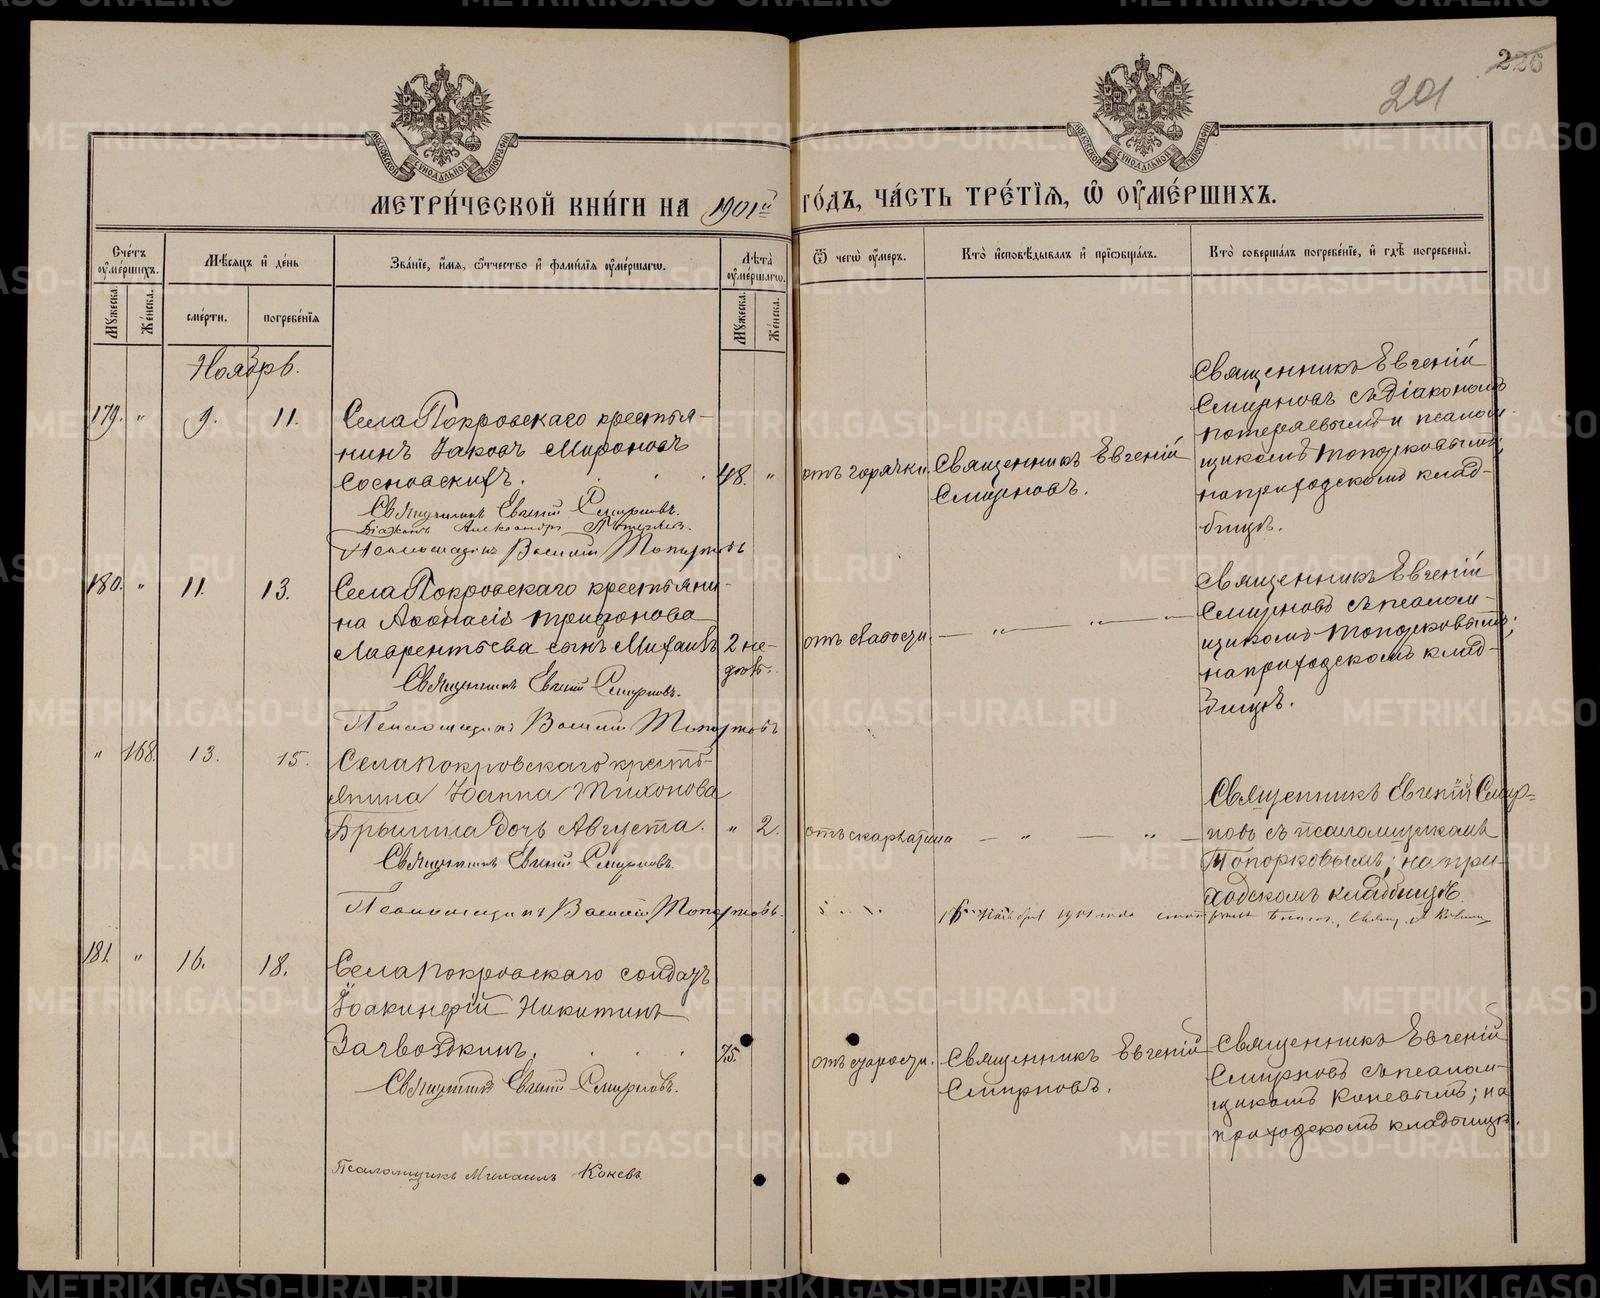 226
201
МЕТРИ́ЧЕСКОЙ КНИ́ГИ НА 1901й ГО́ДЪ, ЧА́СТЬ ТРЕ́ТІѦ, Ѿ ОУМЕ́РШИХЪ.
Сче́тъ оумершихъ.
Мѣсяцъ и день
Зва́нїе, и́мя, о́тчество и фами́лїя оумершагѡ.
Лѣта̀ оумершагѡ.
Ѿ чегѡ̀ оумеръ.
Кто̀ исповѣдывалъ и прїѡбщалъ.
Кто̀ соверша́лъ погребе́нїе, и гдѣ̀ погребены̀.
Мужеска.
Женска.
сме́рти.
погребе́нїя
Мужеска.
Женска.
Ноябрь.
179. " 9. 11.
Села Покровскаго крестья-
нинъ Іаковъ Мироновъ
Сосновскихъ. 48. "
Священникъ Евгеній Смирновъ.
Діаконъ Александръ Потеряевъ.
Псаломщикъ Василій Топорковъ
отъ горячки.
Священникъ Евгеній
Смирновъ.
Священникъ Евгеній
Смирновъ съ діакономъ
Потеряевымъ и псалом-
щикомъ Топорковымъ;
на приходскомъ клад-
бищѣ.
180. " 11. 13.
Села Покровскаго крестьяни-
на Аѳонасія Трифонова
Лаврентьева сынъ Михаилъ 2 не-
дѣли.
Священникъ Евгеній Смирновъ.
Псаломщикъ Василій Топорковъ
отъ слабости. — " — " — "
Священникъ Евгеній
Смирновъ съ псалом-
щикомъ Топорковымъ;
на приходскомъ клад-
бищѣ.
" 168. 13. 15.
Села Покровскаго кресть-
янина Іоанна Тихонова
Брылина дочь Августа. " 2.
Священникъ Евгеній Смирновъ.
Псаломщикъ Василій Топорковъ.
отъ скарлатина — " — " —
Священникъ Евгеній Смир-
новъ съ псаломщикомъ
Топорковымъ; на при-
ходскомъ кладбищѣ.
Ноября 1901 года
181. " 16. 18.
Села Покровскаго солдатъ
Іоакинфій Никитинъ
Загвоздкинъ. 75.
Священникъ Евгеній Смирновъ.
Псаломщикъ Михаилъ Коневъ.
отъ старости.
Священникъ Евгеній
Смирновъ.
Священникъ Евгеній
Смирновъ съ псалом-
щикомъ Коневымъ; на
приходскомъ кладбищѣ.
METRIKI.GASO-URAL.RU